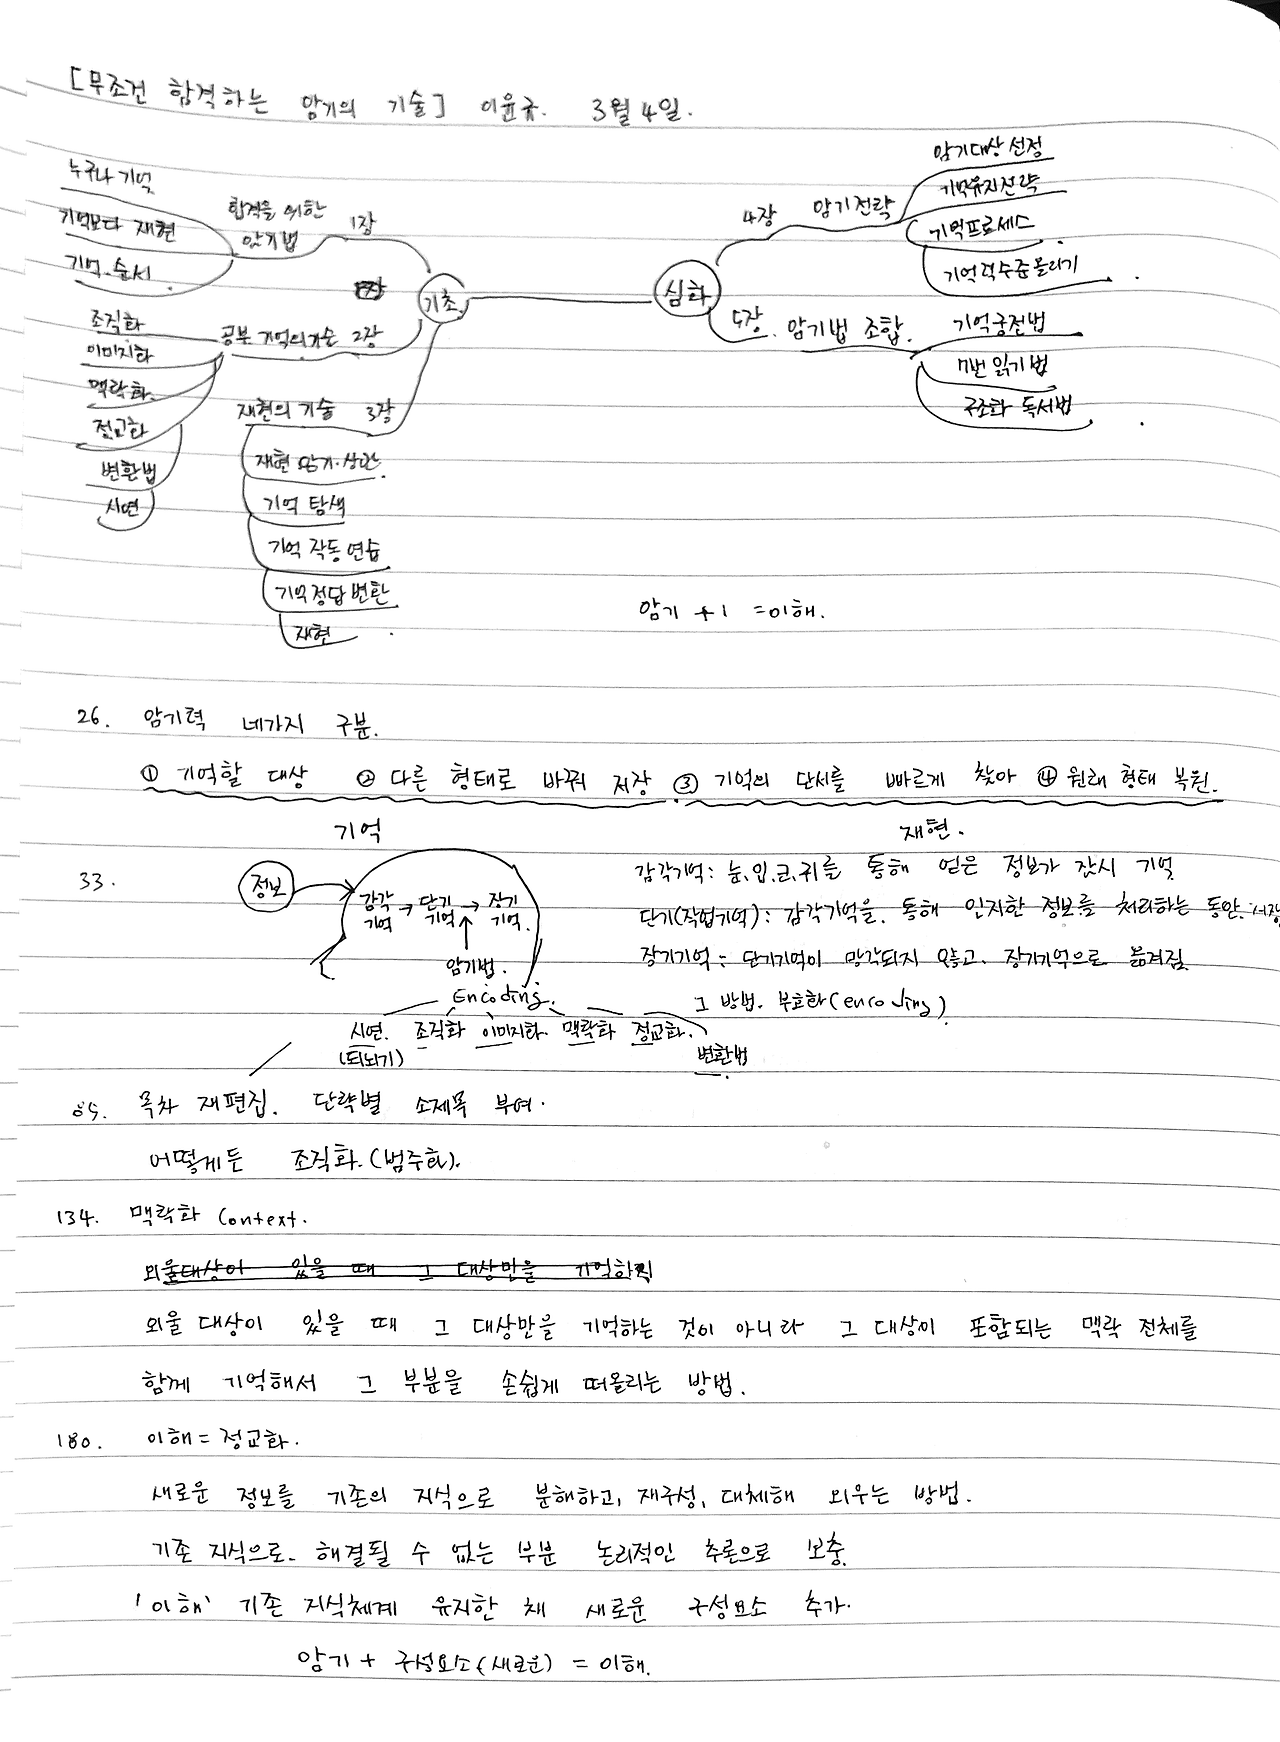 [무조건 합격하는 암기의 기술] 이윤규. 3월 4일.
누구나 기억
기억보다 재현
기억.순서
합격을 위한
암기법
1장
조직화
이미지화
맥락화
정교화
변환법
시연
공부 기억의 기술 2장
재현의 기술 3장
재현 암기.상관
기억 탐색
기억 작동 연습
기억 정답 변환
재현
기초
심화
4장 암기전략
암기대상 선정
기억유지전략
기억프로세스
기억력수준올리기
5장. 암기법 조합.
기억궁전법
7번 읽기법
구조화 독서법
암기 + 1 = 이해.
26. 암기력 네가지 구분.
① 기억할 대상 ② 다른 형태로 바꿔 저장 ③ 기억의 단서를 빠르게 찾아 ④ 원래 형태 복원.
기억 재현.
33.
정보
감각 기억 → 단기 기억 → 장기 기억.
암기법.
Encoding.
시연. 조직화 이미지화. 맥락화 정교화.
(되뇌기)
변환법
감각기억: 눈.입.코.귀를 통해 얻은 정보가 잠시 기억
단기(작업기억): 감각기억을 통해 인지한 정보를 처리하는 동안. 저장
장기기억: 단기기억이 망각되지 않고. 장기기억으로 옮겨짐.
그 방법. 부호화(encoding).
85. 목차 재편집. 단락별 소제목 부여.
어떻게든 조직화.(범주화).
134. 맥락화 Context.
외울대상이 있을 때 그 대상만을 기억하지
외울 대상이 있을 때 그 대상만을 기억하는 것이 아니라 그 대상이 포함되는 맥락 전체를
함께 기억해서 그 부분을 손쉽게 떠올리는 방법.
180. 이해 = 정교화.
새로운 정보를 기존의 지식으로 분해하고, 재구성, 대체해 외우는 방법.
기존 지식으로 해결될 수 없는 부분 논리적인 추론으로 보충.
'이해' 기존 지식체계 유지한 채 새로운 구성요소 추가.
암기 + 구성요소(새로운) = 이해.